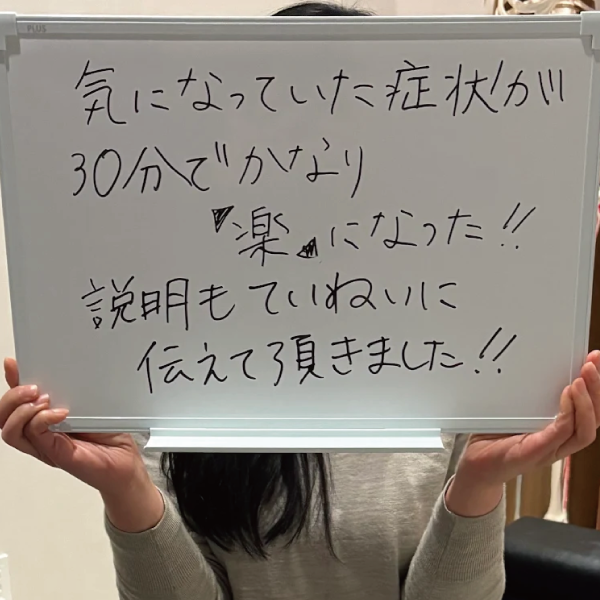 PLUS
気になっていた症状が
30分でかなり
『楽』になった!!
説明もていねいに
伝えて頂きました!!